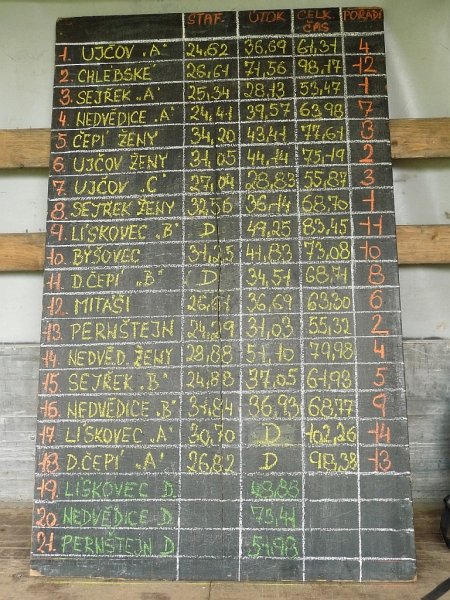 STAF. ÚTOK CELK. ČAS POŘADÍ
1. UJČOV "A" 24,62 36,69 61,31 4
2. CHLEBSKÉ 26,61 71,56 98,17 12
3. SEJŘEK "A" 25,34 28,13 53,47 1
4. NEDVĚDICE "A" 24,41 39,57 63,98 7
5. ČEPÍ ŽENY 34,20 43,41 77,61 3
6. UJČOV ŽENY 31,05 44,14 75,19 2
7. UJČOV "C" 27,04 28,83 55,87 3
8. SEJŘEK ŽENY 32,56 36,14 68,70 1
9. LÍSKOVEC "B" D 49,25 83,45 11
10. BYŠOVEC 31,25 41,83 73,08 10
11. D.ČEPÍ "B" D 34,51 68,71 8
12. MITAŠI 26,61 36,69 63,30 6
13. PERNŠTEJN 24,29 31,03 55,32 2
14. NEDVĚD. ŽENY 28,88 51,10 79,98 4
15. SEJŘEK "B" 24,88 37,05 61,93 5
16. NEDVĚDICE "B" 31,84 36,93 68,77 9
17. LÍSKOVEC "A" 30,70 D 102,26 14
18. D.ČEPÍ "A" 26,82 D 98,38 13
19. LÍSKOVEC D.
20. NEDVĚDICE D. 73,41
21. PERNŠTEJN D. 51,98